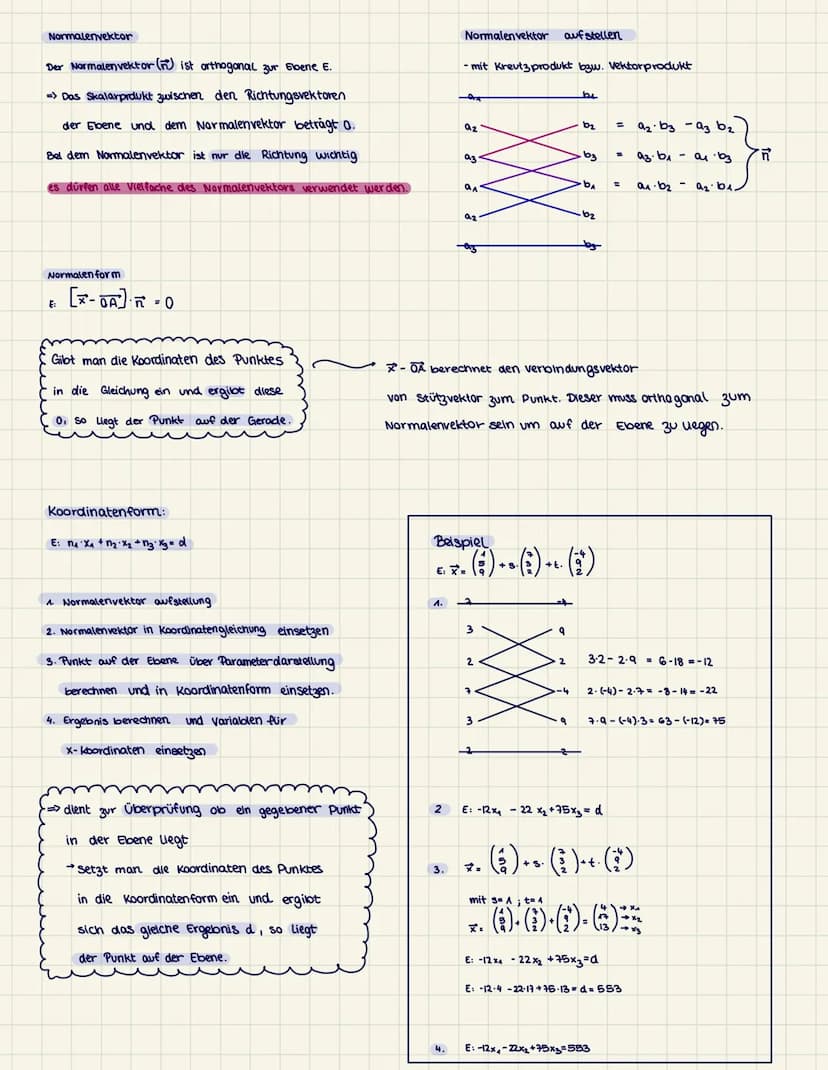 Normalenvektor
Der Normalenvektor (n⃗) ist orthogonal zur Ebene E.
=> Das Skalarprdukt zwischen den Richtungsvektoren
der Ebene und dem Normalenvektor beträgt 0.
Bei dem Normalenvektor ist nur die Richtung wichtig
es dürfen alle Vielfache des Normalenvektors verwendet werden.
Normalenvektor aufstellen
- mit Kreutzprodukt bzw. Vektorprodukt
a₁ b₁
a₂ b₂ = a₂·b₃ - a₃ b₂
a₃ b₃ = a₃·b₁ - a₁·b₃ n⃗
a₁ b₁ = a₁·b₂ - a₂·b₁
a₂ b₂
a₃ b₃
Normalenform
E: [x⃗ - OA⃗]·n⃗ = 0
Gibt man die Koordinaten des Punktes
in die Gleichung ein und ergibt diese
0, so liegt der Punkt auf der Gerade.
x⃗ - OA⃗ berechnet den verbindungsvektor
von Stützvektor zum Punkt. Dieser muss orthogonal zum
Normalenvektor sein um auf der Ebene zu liegen.
Koordinatenform:
E: n₁·x₁ + n₂·x₂ + n₃·x₃ = d
1. Normalenvektor aufstellung
2. Normalenvektor in Koordinatengleichung einsetzen
3. Punkt auf der Ebene über Parameterdarstellung
berechnen und in Koordinatenform einsetzen.
4. Ergebnis berechnen und Variablen für
x-koordinaten einsetzen
=> dient zur Überprüfung ob ein gegebener Punkt
in der Ebene liegt
→ setzt man die Koordinaten des Punktes
in die Koordinatenform ein und ergibt
sich das gleiche Ergebnis d, so liegt
der Punkt auf der Ebene.
Beispiel
E: x⃗ = (1 5 9) + s·(7 3 2) + t·(-4 9 2)
1. 7 -4
3 9
2 2 3·2 - 2·9 = 6-18 = -12
7 -4 2·(-4) - 2·7 = -8 - 14 = -22
3 9 7·9 - (-4)·3 = 63 - (-12) = 75
2 2
2 E: -12x₁ - 22x₂ + 75x₃ = d
3. x⃗ = (1 5 9) + s·(7 3 2) + t·(-4 9 2)
mit s=1 ; t=1
x⃗ = (1 5 9) + (7 3 2) + (-4 9 2) = (4 17 13) → x₁ → x₂ → x₃
E: -12x₁ - 22x₂ + 75x₃ = d
E: -12·4 - 22·17 + 75·13 = d = 553
4. E: -12x₁ - 22x₂ + 75x₃ = 553